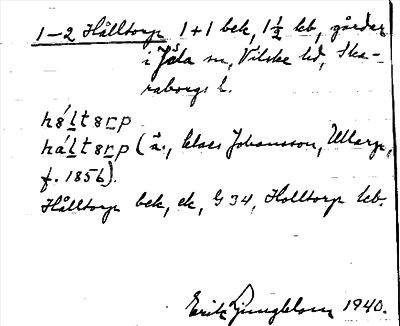 1–2 Hålltorp 1+1 bek, 1½ kb, gårdar
i Jäla sn, Vilske hd, Ska-
raborgs l.
hó̜ltɐrp
háltɐrp (ä., Claes Johansson, Ullarp,
f. 1856).
Hålltorp bek, ek, G 34, Holltorp kb.
Erik Ljungblom 1940.